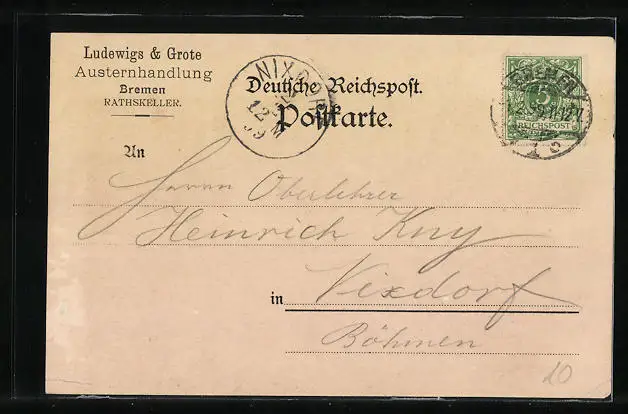 Ludewigs & Grote
Austernhandlung
Bremen
RATHSKELLER.
NIXDORF
12
99
Deutsche Reichspost.
Postkarte.
BREMEN
5
REICHSPOST
An
Herrn Oberlehrer
Heinrich Kny
in Nixdorf
Böhmen
10